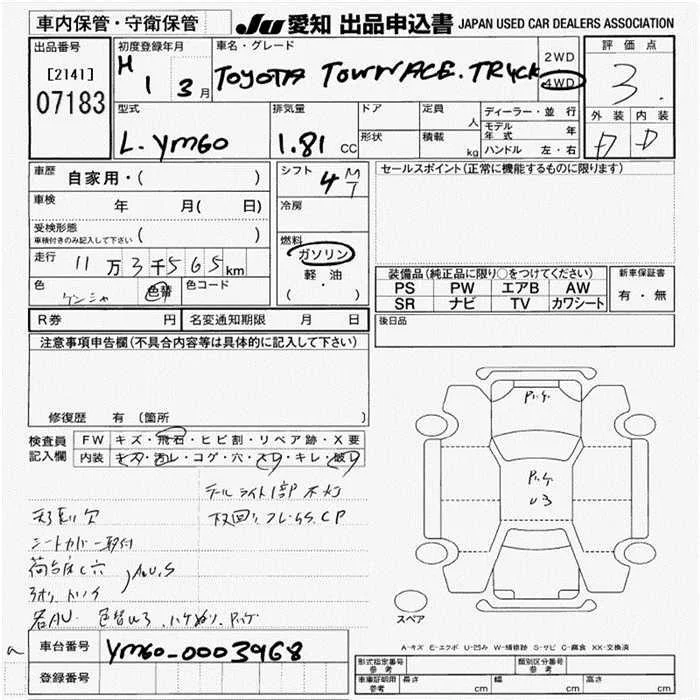 車内保管・守衛保管
JU 愛知 出品申込書 JAPAN USED CAR DEALERS ASSOCIATION
出品番号
[2141]
07183
初度登録年月
H 1 3月
車名・グレード
TOYOTA TOWNACE.TRUCK
2WD
4WD
評価点
3.
外装 内装
D D
型式
L-YM60
排気量
1.81 CC
ドア
形状
定員
人
積載
kg
ディーラー・並行
モデル年式 年
ハンドル 左・右
車歴 自家用・( )
車検 年 月( 日)
受検形態
車検付きのみ記入して下さい ( )
走行 11万3千565km
色
色替
色コード
シフト 4 MT
冷房
燃料
ガソリン
軽油
( ・ )
セールスポイント(正常に機能するものに限ります)
装備品(純正品に限り○をつけてください)
PS PW エアB AW
SR ナビ TV カワシート
新車保証書
有・無
後日品
R券 円
名変通知期限 月 日
注意事項申告欄(不具合内容等は具体的に記入して下さい)
修復歴 有(箇所 )
検査員
記入欄
FW キズ・飛石・ヒビ割・リペア跡・X要
内装 キズ・汚レ・コゲ・穴・スレ・キレ・破レ
テールライト1部不灯
シートカバー
車台番号 YM60-0003968
登録番号
スペア
U3
A-キズ E-エクボ U-凹み W-補修跡 S-サビ C-腐食 XX-交換済
形式指定番号
参考
類別区分番号
参考
車庫証明用
参考
長さ cm
幅 cm
高さ cm